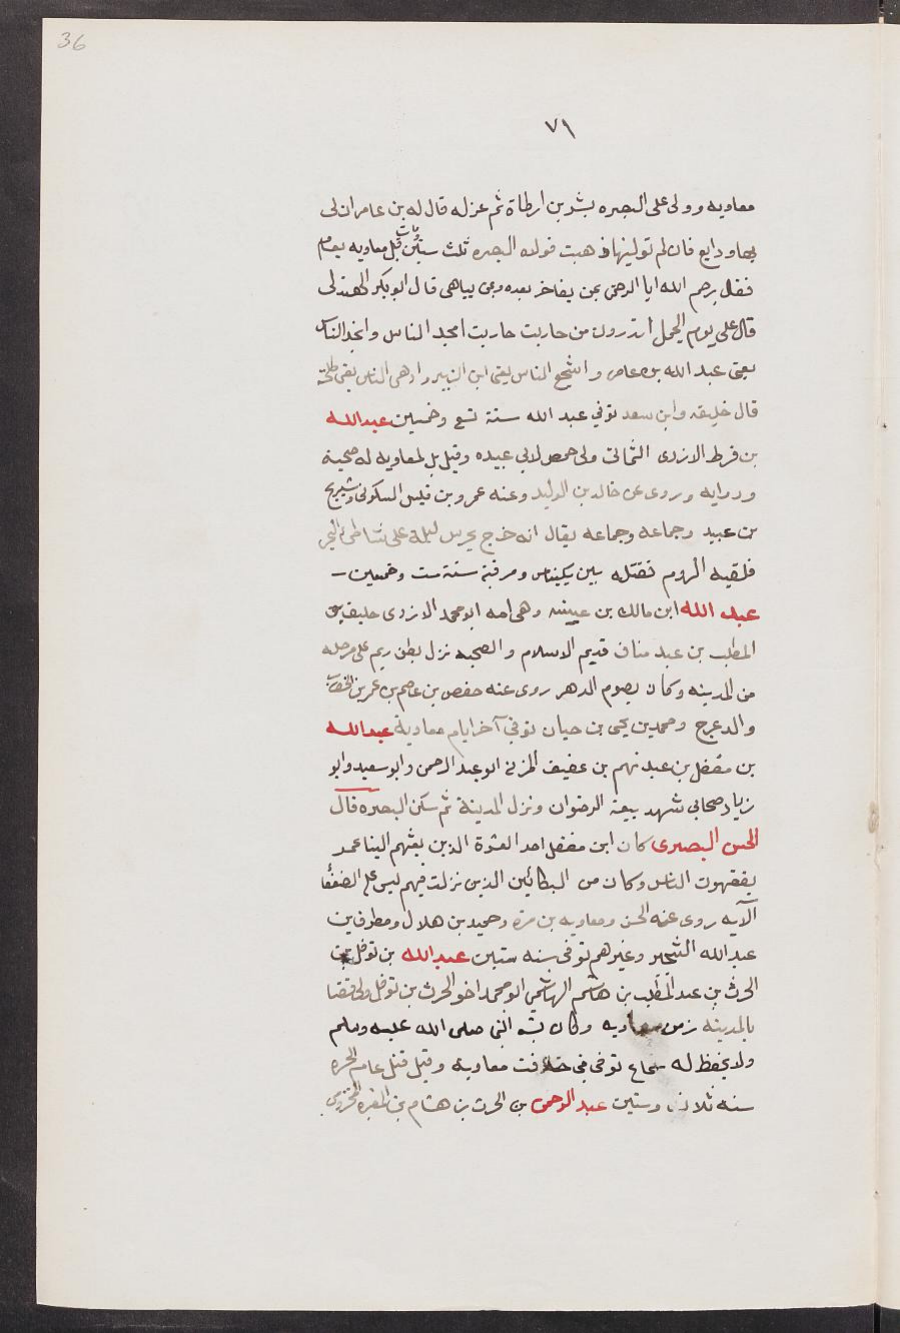 36
٧٩
معاويه وولى على البصره بشر بن ارطاة ثم عزله قال له بن عامر ان لى
بها ودايع فان لم تولينها ذهبت فولاه البصره ثلث سنين ومات قبل معاويه بعام
فقال يرحم الله ابا الرحمن بمن يفاخر بعده وبمن يباهى قال ابو بكر الهذلى
قال على يوم الجمل اتدرون من حاربت حاربت امجد الناس وانجد الناس
يعنى عبد الله بن عامر واشجع الناس يعنى ابن الزبير وادهى الناس يعنى طلحة
قال خليفه وابن سعد توفي عبد الله سنة تسع وخمسين عبد الله
بن قرط الازدى الثمالى ولى حمص لابى عبيده وقيل بل لمعاويه له صحبة
وروايه وروى عن خالد بن الوليد وعنه عمرو بن قيس السكونى وشريح
بن عبيد وجماعه وجماعه يقال انه خرج يحرس ليلة على شاطى البحر
فلقيه الروم فقتله بين بلنياس ومرقية سنة ست وخمسين
عبد الله ابن مالك بن عيينه وهى امه ابو محمد الازدى حليف بن
المطلب بن عبد مناف قديم الاسلام والصحبه نزل بطن ريم على مرحله
من المدينه وكان يصوم الدهر روى عنه حفص بن عاصم بن عمر بن الخطاب
والاعرج ومحمد بن يحى بن حبان توفى آخر ايام معاوية عبد الله
بن مغفل بن عبد نهم بن عفيف المزنى ابو عبد الرحمن وابو سعيد وابو
زياد صحابى شهد بيعة الرضوان ونزل المدينة ثم سكن البصره قال
الحسن البصرى كان ابن مغفل احد العشرة الذين بعثهم الينا عمر
يفقهون الناس وكان من البكائين الذين نزلت فيهم ليس على الضعفا
الآيه روى عنه الحسن ومعاويه بن مرة وحميد بن هلال ومطرف بن
عبد الله الشخير وغيرهم توفى سنه ستين عبد الله بن نوفل بن
الحرث بن عبد المطلب بن هاشم الهاشمى ابو محمد اخو الحرث بن نوفل ولى قضا
بالمدينه زمن معاويه وكان يشبه النبى صلى الله عليه وسلم
ولا يحفظ له سماع توفى فى خلافت معاويه وقيل قتل عام الحره
سنه ثلاث وستين عبد الرحمن بن الحرث بن هشام بن المغيره المخزومى